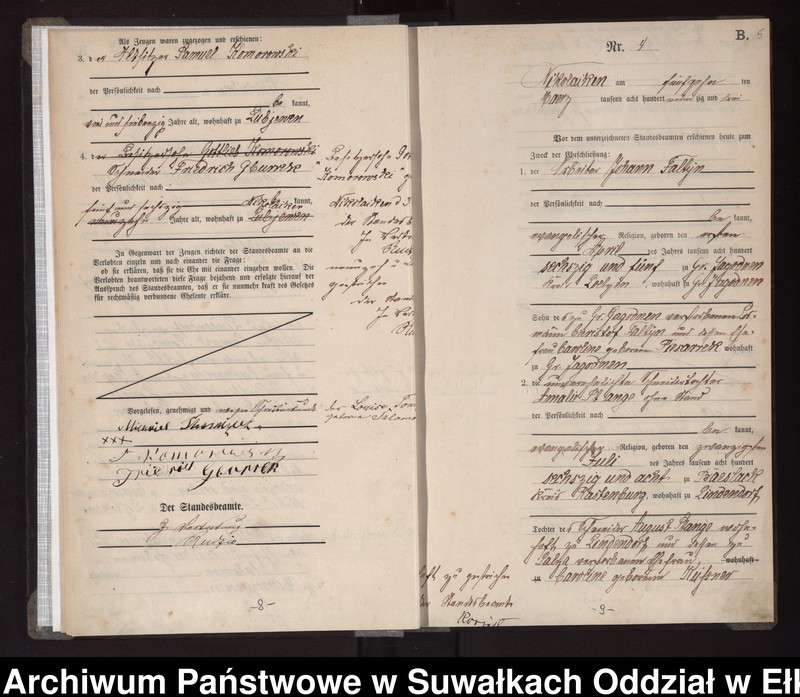 Als Zeugen waren zugezogen und erschienen:
3. der Altsitzer Samuel Komorowski
der Persönlichkeit nach
be kannt,
drei und siebenzig Jahre alt, wohnhaft zu Lubjewen
4. der Besitzersohn Gottlieb Komorowski
Schneider Friedrich
der Persönlichkeit nach
kannt,
fünf und sechzig Nikolaiken
Jahre alt, wohnhaft zu Lubjewen
In Gegenwart der Zeugen richtete der Standesbeamte an die
Verlobten einzeln und nach einander die Frage:
ob sie erklären, daß sie die Ehe mit einander eingehen wollen. Die
Verlobten beantworteten diese Frage bejahend und erfolgte hierauf der
Ausspruch des Standesbeamten, daß er sie nunmehr kraft des Gesetzes
für rechtmäßig verbundene Eheleute erkläre.
Vorgelesen, genehmigt und wegen
Michael
XXX
S Komorowski
Friedrich
Der Standesbeamte.
In Vertretung
-8-
Besitzersohn Got
Komorowski
Nikolaiken d 3
der Standesb
In Vertr
gestrichen
der Stan
In Ver
der Louise
geborene
zu gestrichen
der Standesbeamte
B. 5
Nr. 4
Nikolaiken am fünfzehn ten
März tausend acht hundert neun zig und drei
Vor dem unterzeichneten Standesbeamten erschienen heute zum
Zweck der Eheschließung:
1. der Arbeiter Johann Faltijn
der Persönlichkeit nach
be kannt,
evangelischer Religion, geboren den ersten
April des Jahres tausend acht hundert
sechszig und fünf zu Gr. Jagodnen
Kreis Loetzen, wohnhaft zu Gr. Jagodnen
Sohn des zu Gr. Jagodnen verstorbenen
Christof Faltijn und dessen Ehe-
frau Caroline geborene wohnhaft
zu Gr. Jagodnen
2. die unverehelichte Schneidertochter
Amalie Stange ohne Stand
der Persönlichkeit nach
be kannt,
evangelischer Religion, geboren den zwanzigsten
Juli des Jahres tausend acht hundert
sechszig und acht zu Baeslack
Kreis Rastenburg, wohnhaft zu Lindendorf
Tochter des Schneider August Stange wohn-
haft zu Lindendorf und dessen zu
Salza verstorbenen Ehefrau wohnhaft
zu Caroline geborene
-9-
Archiwum Państwowe w Suwałkach Oddział w Eł